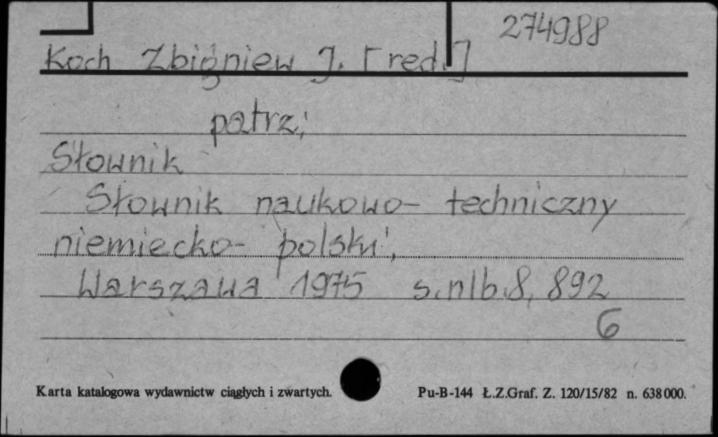 274988
Koch Zbigniew J. [red.]
patrz;
Słownik
Słownik naukowo- techniczny
niemiecko- polski;
Warszawa 1975 s.nlb.8, 892
6
Karta katalogowa wydawnictw ciągłych i zwartych.
Pu-B-144 Ł.Z.Graf. Z. 120/15/82 n. 638 000.